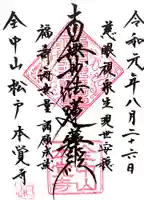 令和元年八月二十六日
慈眼視衆生 現世安穏
南無妙法蓮華経
福壽海無量 諸願成就
中山 松戸 本覚寺